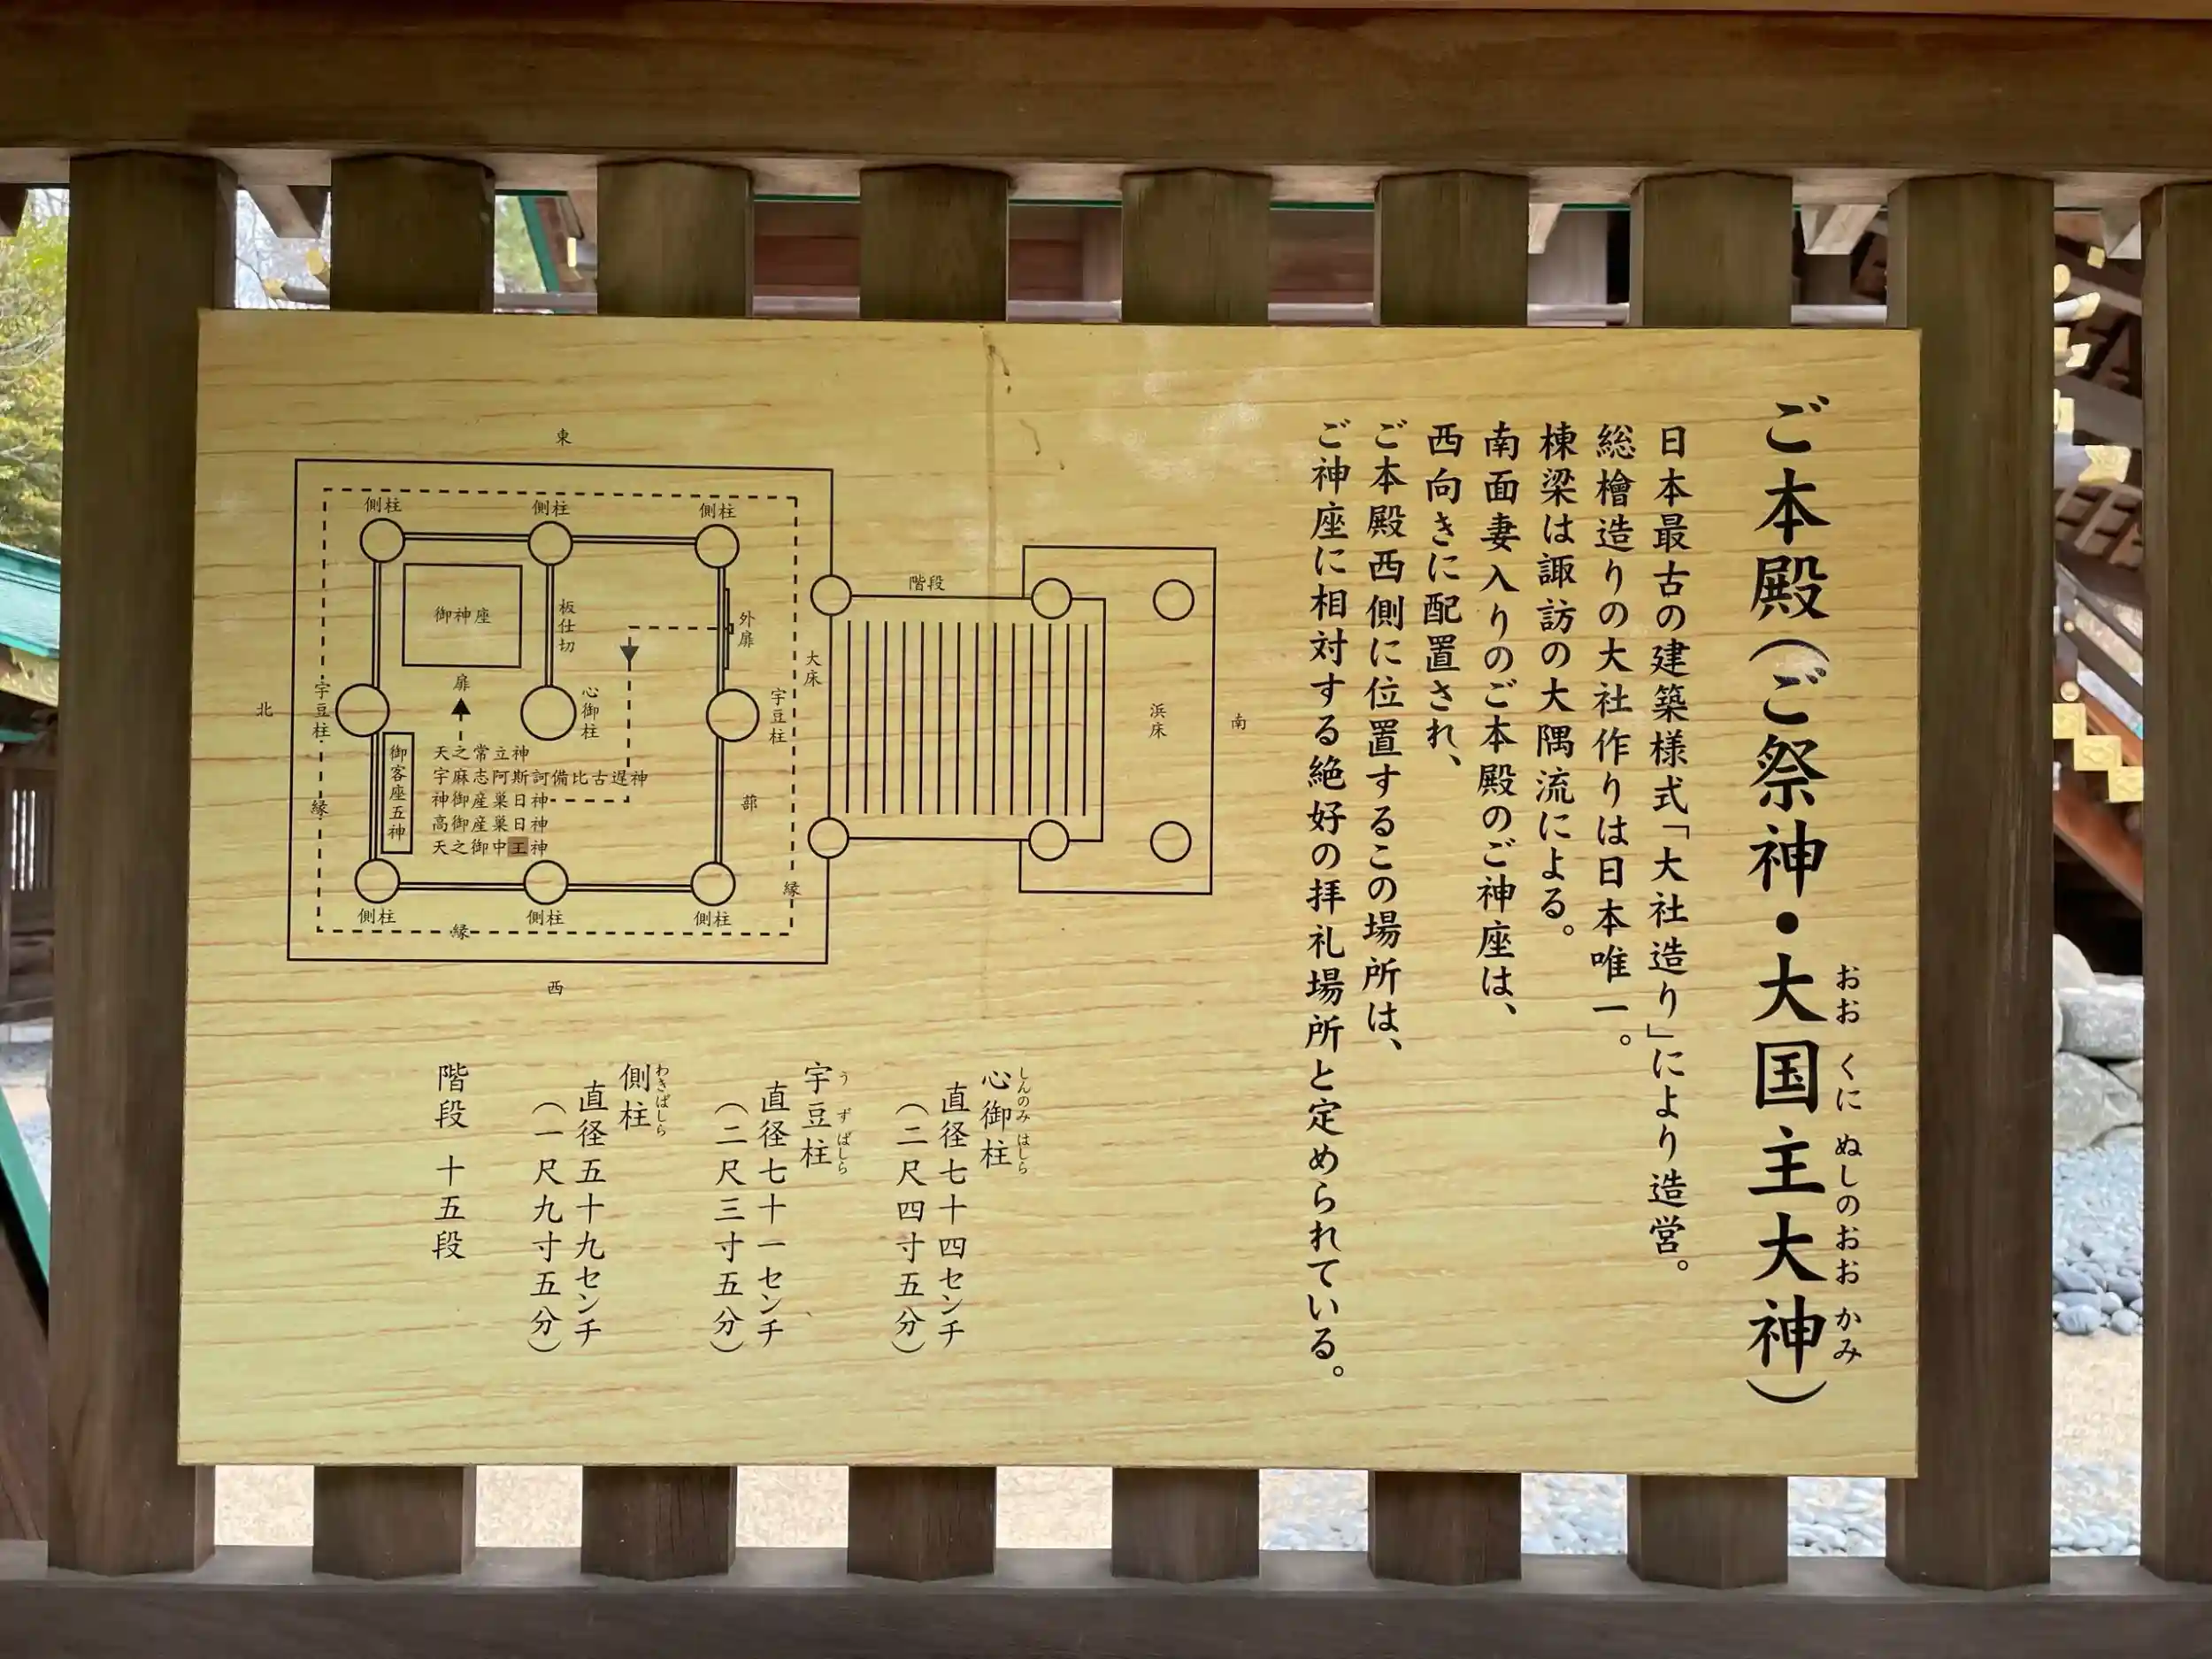 ご本殿(ご祭神・大国主大神)
おお くに ぬしのおお かみ
日本最古の建築様式「大社造り」により造営。
総檜造りの大社作りは日本唯一。
棟梁は諏訪の大隅流による。
南面妻入りのご本殿のご神座は、
西向きに配置され、
ご本殿西側に位置するこの場所は、
ご神座に相対する絶好の拝礼場所と定められている。
東
側柱
側柱
側柱
御神座
板仕切
外扉
階段
大床
扉
宇豆柱
心御柱
宇豆柱
浜床
北
南
御客座五神
天之常立神
宇麻志阿斯訶備比古遅神
神御産巣日神
高御産巣日神
天之御中王神
蔀
縁
縁
縁
側柱
側柱
側柱
西
心御柱
しんのみ はしら
直径七十四センチ
(二尺四寸五分)
宇豆柱
う ず ばしら
直径七十一センチ
(二尺三寸五分)
側柱
わきばしら
直径五十九センチ
(一尺九寸五分)
階段 十五段